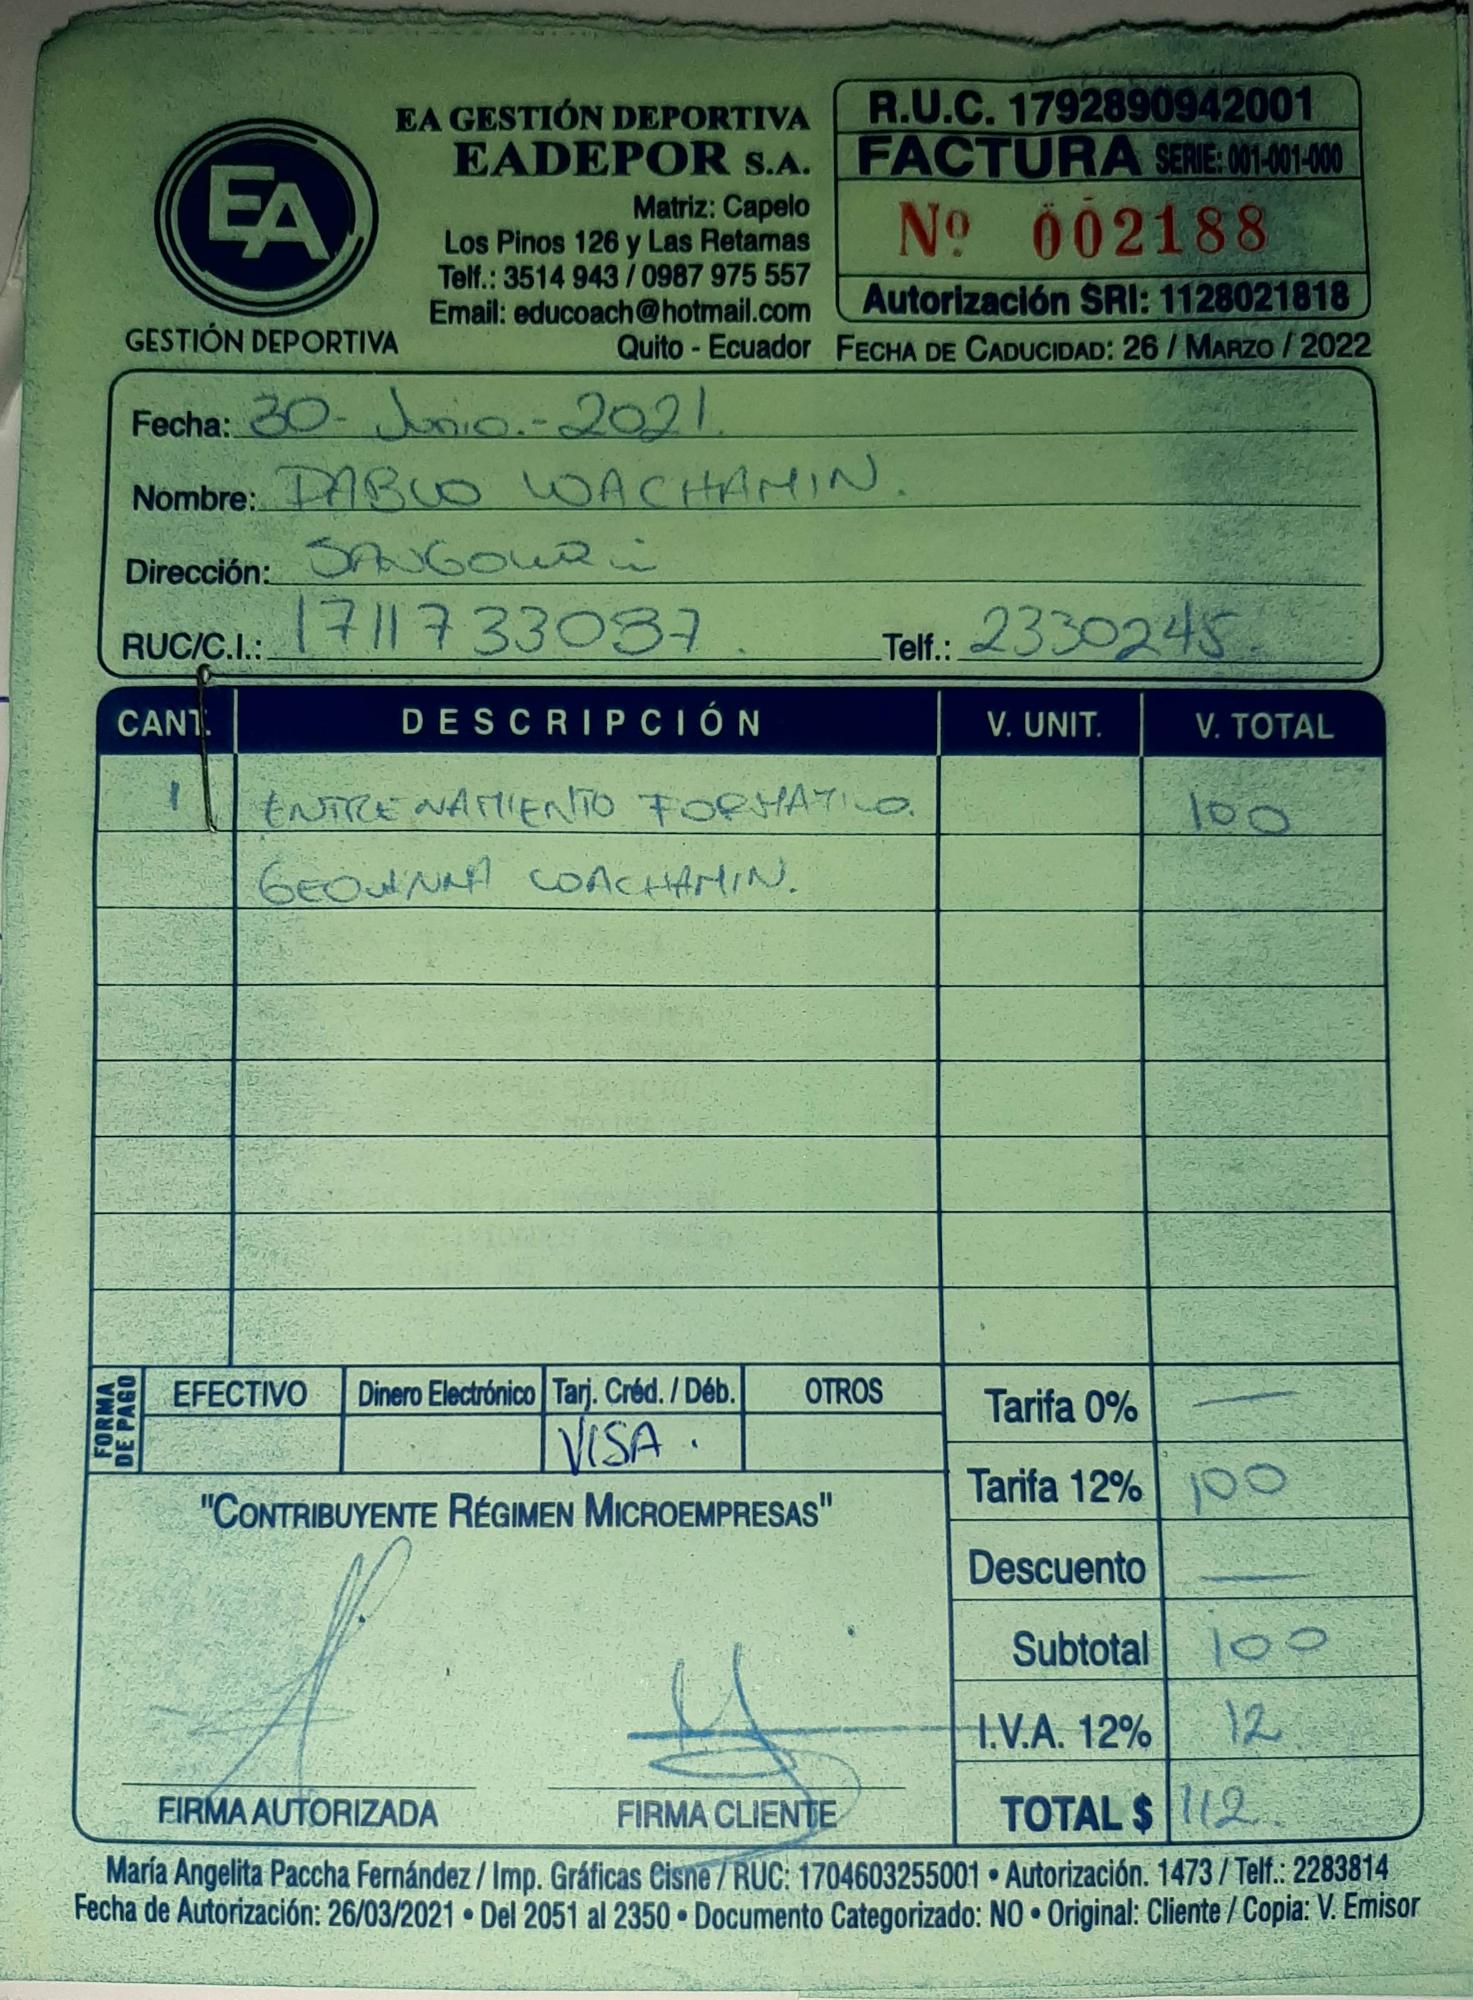 EA
GESTIÓN DEPORTIVA
EA GESTIÓN DEPORTIVA
EADEPOR S.A.
Matriz: Capelo
Los Pinos 126 y Las Retamas
Telf.: 3514 943 / 0987 975 557
Email: educoach@hotmail.com
Quito - Ecuador
R.U.C. 1792890942001
FACTURA SERIE: 001-001-000
Nº 002188
Autorización SRI: 1128021818
FECHA DE CADUCIDAD: 26 / MARZO / 2022
Fecha: 30-Junio.-2021.
Nombre: PABLO LOACHAMIN.
Dirección: SANGOLQUI
RUC/C.I.: 1711733087. Telf.: 2330245
CANT. DESCRIPCIÓN V. UNIT. V. TOTAL
1 ENTRENAMIENTO FORMATIVO. 100
LOACHAMIN.
FORMA DE PAGO
EFECTIVO Dinero Electrónico Tarj. Créd. / Déb. OTROS
VISA.
Tarifa 0% —
Tarifa 12% 100
Descuento —
Subtotal 100
I.V.A. 12% 12
TOTAL $ 112
"CONTRIBUYENTE RÉGIMEN MICROEMPRESAS"
FIRMA AUTORIZADA FIRMA CLIENTE
María Angelita Paccha Fernández / Imp. Gráficas Cisne / RUC: 1704603255001 • Autorización. 1473 / Telf.: 2283814
Fecha de Autorización: 26/03/2021 • Del 2051 al 2350 • Documento Categorizado: NO • Original: Cliente / Copia: V. Emisor